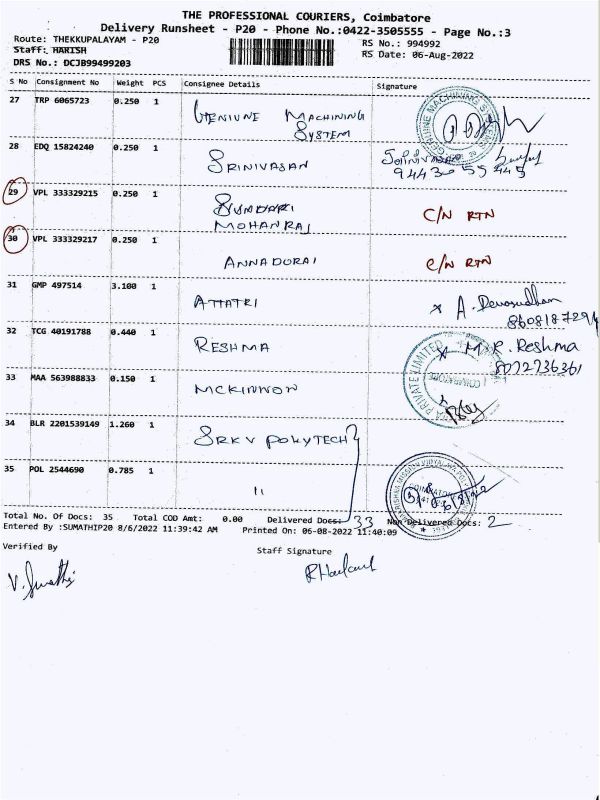 THE PROFESSIONAL COURIERS, Coimbatore
Delivery Runsheet - P20 - Phone No.:0422-3505555 - Page No.:3
Route: THEKKUPALAYAM - P20
RS No.: 994992
Staff: HARISH
RS Date: 06-Aug-2022
DRS No.: DCJB99499203
S No Consignment No Weight PCS Consignee Details Signature
27 TRP 6065723 0.250 1 GENIUNE MACHINING
SYSTEM
28 EDQ 15824240 0.250 1 SRINIVASAN
29 VPL 333329215 0.250 1 SUNDARI C/N RTN
MOHANRAJ
30 VPL 333329217 0.250 1 ANNADURAI C/N RTN
31 GMP 497514 3.100 1 ATTATRI x A. Devasudham
32 TCG 40191788 0.440 1 RESHMA x M.R. Reshma
8072736361
33 MAA 563988833 0.150 1 MCKINNON
34 BLR 2201539149 1.260 1 SRKV POLYTECH
35 POL 2544690 0.785 1 "
Total No. Of Docs: 35 Total COD Amt: 0.00 Delivered Docs: 33 Non Delivered Docs: 2
Entered By :SUMATHIP20 8/6/2022 11:39:42 AM Printed On: 06-08-2022 11:40:09
Verified By Staff Signature